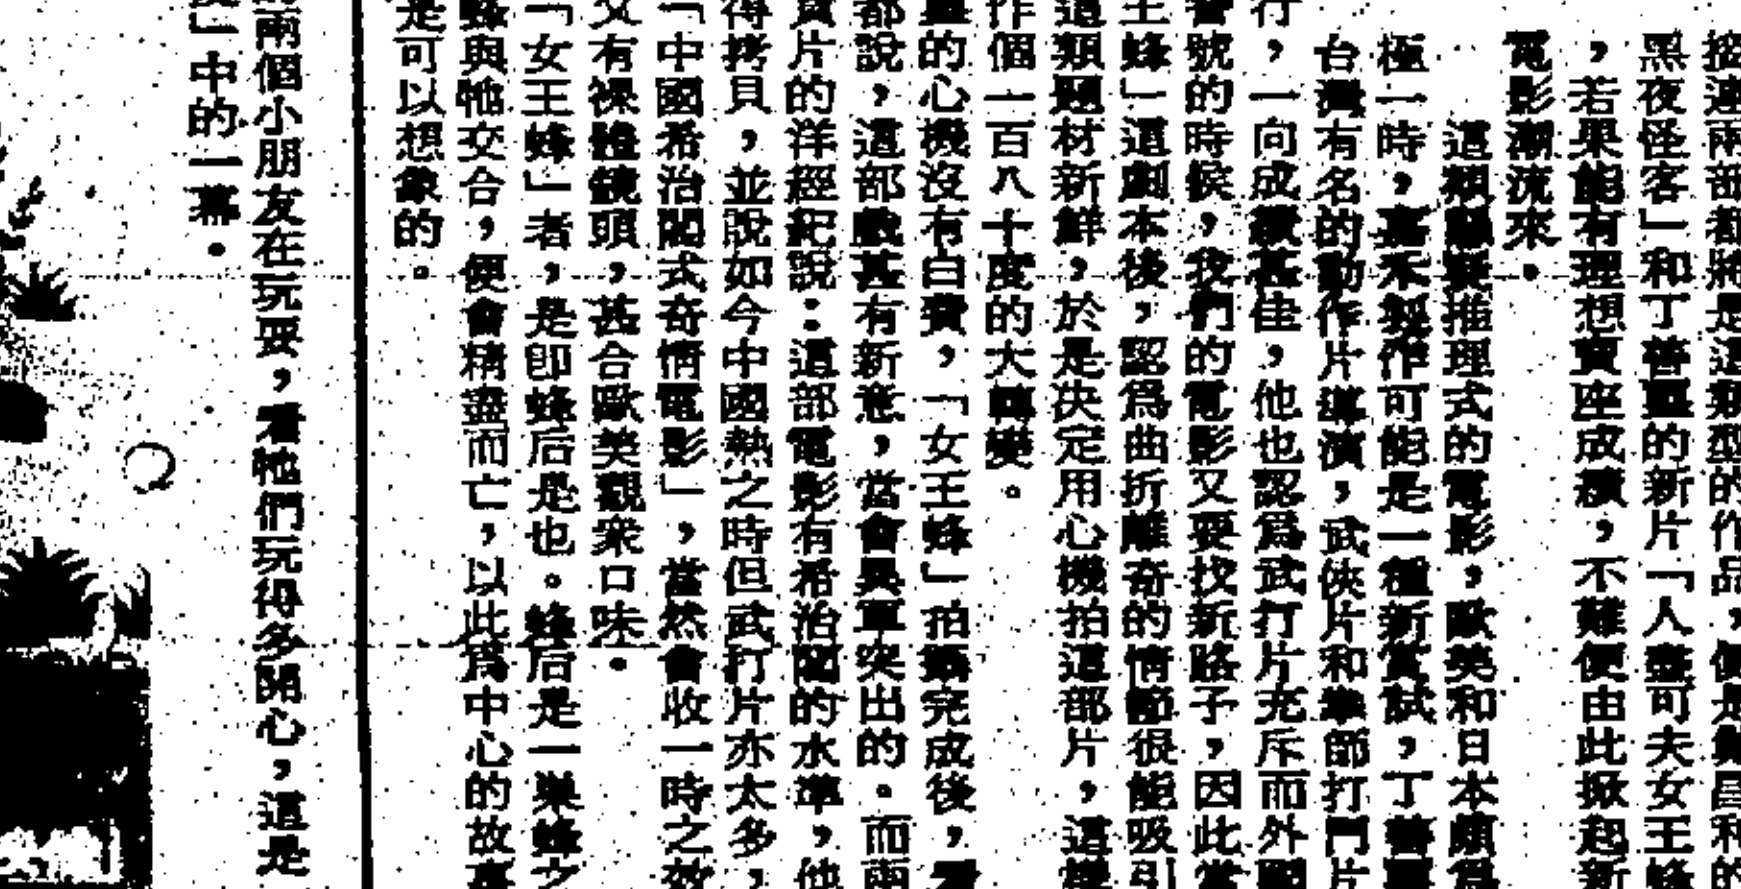 接連兩部都將是這類型的作品，便是
黑夜怪客」和丁善璽的新片「人盡可夫女王蜂
，若果能有理想賣座成績，不難便由此掀起新
電影潮流來。
這類懸疑推理式的電影，歐美和日本頗爲
極一時，嘉禾製作可能是一種新嘗試，丁善璽
台灣有名的動作片導演，武俠片和拳師打鬥片
行，一向成績甚佳，他也認爲武打片充斥而外國
號的時候，我們的電影又要找新路子，因此當
王蜂」這劇本後，認爲曲折離奇的情節很能吸引
這類題材新鮮，於是決定用心機拍這部片，這樣
作個一百八十度的大轉變。
的心機沒有白費，「女王蜂」拍攝完成後，看
都說，這部戲甚有新意，當會異軍突出的。而兩
賣片的洋經紀說：這部電影有希治閣的水準，他
得拷貝，並說如今中國熱之時但武打片亦太多，
「中國希治閣式奇情電影」，當然會收一時之效
又有裸體鏡頭，甚合歐美觀衆口味。
「女王蜂」者，是即蜂后是也。蜂后是一巢蜂之
蜂與牠交合，便會精盡而亡，以此爲中心的故事
是可以想象的。
兩個小朋友在玩耍，看牠們玩得多開心，這是
」中的一幕。